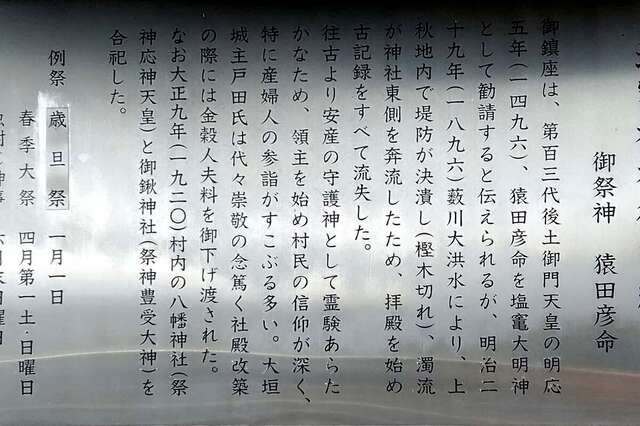 御祭神　猿田彦命
御鎮座は、第百三代後土御門天皇の明応
五年(一四九六)、猿田彦命を塩竃大明神
として勧請すると伝えられるが、明治二
十九年(一八九六)藪川大洪水により、上
秋地内で堤防が決潰し(樫木切れ)、濁流
が神社東側を奔流したため、拝殿を始め
古記録をすべて流失した。
往古より安産の守護神として霊験あらた
かなため、領主を始め村民の信仰が深く、
特に産婦人の参詣がすこぶる多い。大垣
城主戸田氏は代々崇敬の念篤く社殿改築
の際には金穀人夫料を御下げ渡された。
なお大正九年(一九二〇)村内の八幡神社(祭
神応神天皇)と御鍬神社(祭神豊受大神)を
合祀した。
例祭　歳旦祭　一月一日
春季大祭　四月第一土・日曜日